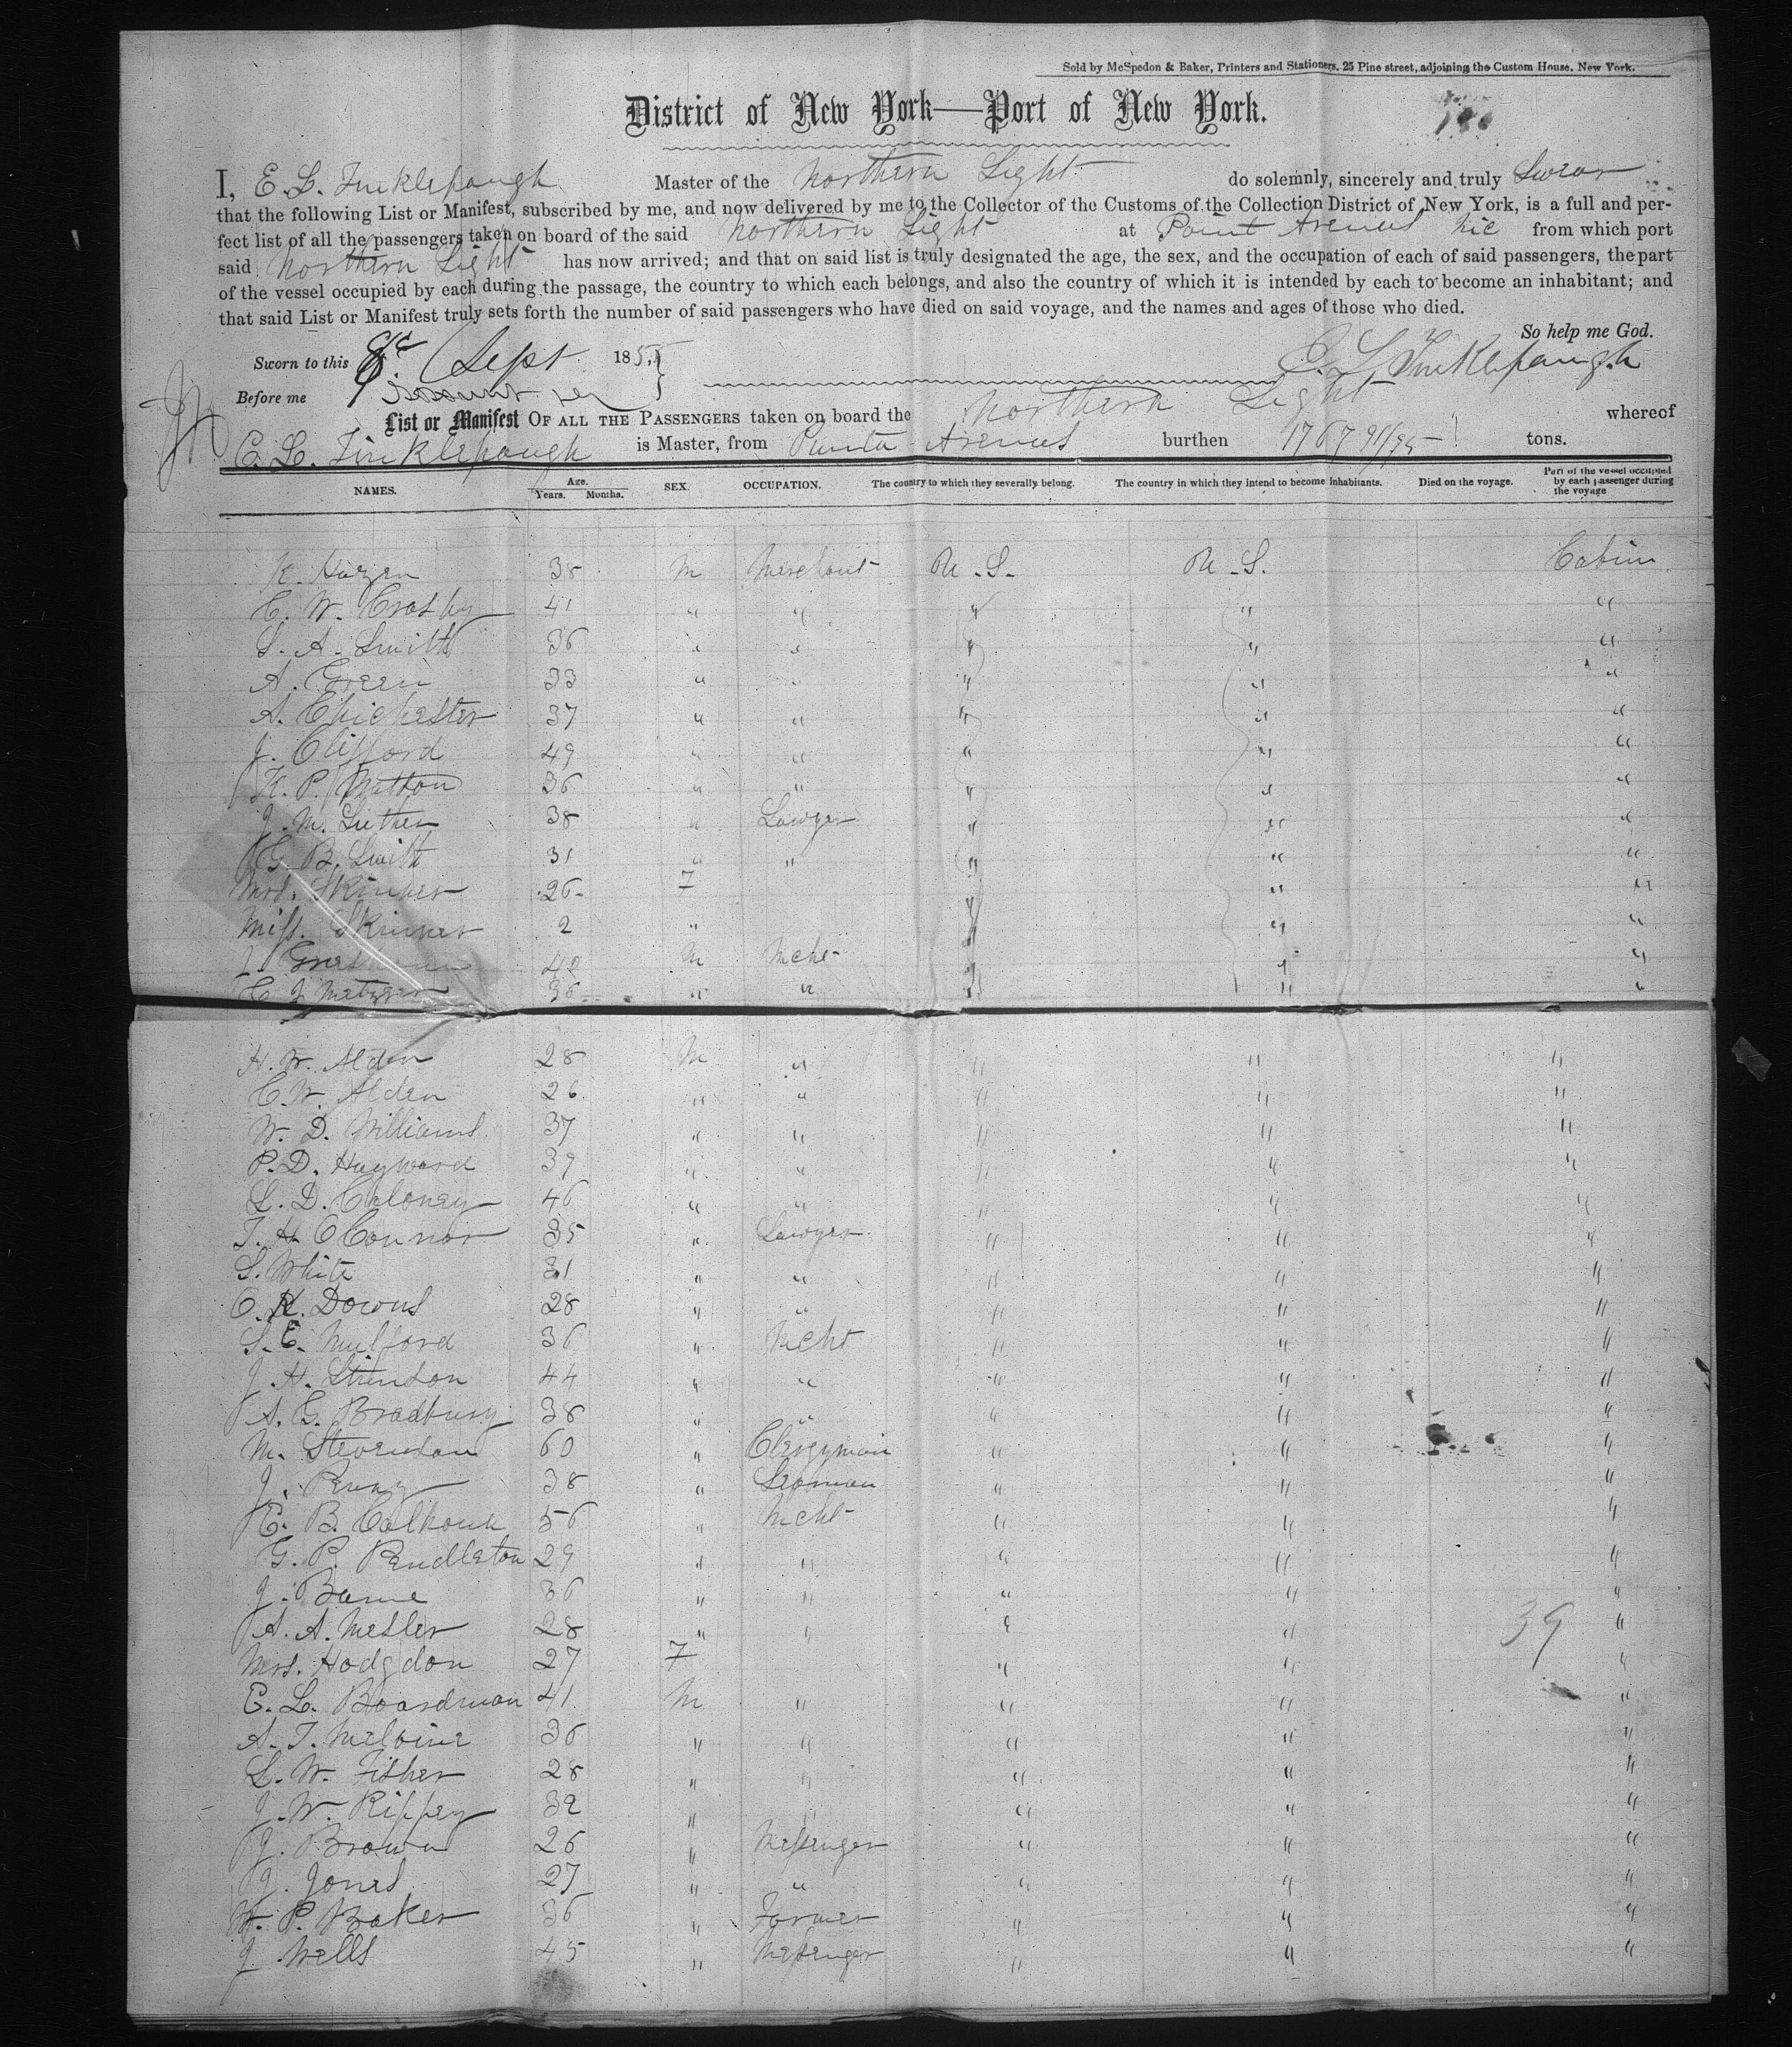 Sold by McSpedon & Baker, Printers and Stationers, 25 Pine street, adjoining the Custom House, New York.
District of New York—Port of New York.
I, E. L. Tinklepaugh Master of the Northern Light do solemnly, sincerely and truly Swear
that the following List or Manifest, subscribed by me, and now delivered by me to the Collector of the Customs of the Collection District of New York, is a full and per-
fect list of all the passengers taken on board of the said Northern Light at Point Arenas Nic from which port
said Northern Light has now arrived; and that on said list is truly designated the age, the sex, and the occupation of each of said passengers, the part
of the vessel occupied by each during the passage, the country to which each belongs, and also the country of which it is intended by each to become an inhabitant; and
that said List or Manifest truly sets forth the number of said passengers who have died on said voyage, and the names and ages of those who died.
So help me God.
Sworn to this Sept 1855
E. L. Tinklepaugh
Before me
List or Manifest OF ALL THE PASSENGERS taken on board the Northern Light whereof
E. L. Tinklepaugh is Master, from Punta Arenas burthen 1767 91/95 tons.
NAMES. Age. Years. Months. SEX. OCCUPATION. The country to which they severally belong. The country in which they intend to become inhabitants. Died on the voyage. Part of the vessel occupied by each passenger during the voyage
K. Hazen 38 M Merchant U.S. U.S. Cabin
C. W. Crosby 41 " " " " "
S. A. Smith 36 " " " " "
A. Green 33 " " " " "
A. Chichester 37 " " " " "
J. Clifford 49 " " " " "
K. P. 36 " " " " "
J. M. Luther 38 " Lawyer " " "
G. B. Smith 31 " " " " "
Mrs. Skinner 26 F " " "
Miss. Skinner 2 " " " "
40 M Mcht " " "
C. J. Metzger 36 " " " " "
H. W. Alden 28 M " " " "
C. W. Alden 26 " " " " "
W. D. Williams 37 " " " " "
P. D. Hayward 39 " " " " "
L. D. Coloney 46 " " " " "
T. H. O Connor 35 " Lawyer " " "
S. White 31 " " " " "
O. K. Downs 28 " " " " "
S. E. Mulford 36 " Mcht " " "
J. H. Stinson 44 " " " " "
A. G. Bradbury 38 " " " " "
M. Stevenson 60 " Clergyman " " "
J. Penny 38 " Seaman " " "
C. B. Calhoun 56 " Mcht " " "
G. P. Pendleton 29 " " " " "
J. Bame 36 " " " " "
A. A. Mesler 28 " " " " "
39
Mrs. Hodgdon 27 F " " "
C. L. Boardman 41 M " " " "
A. T. Melvine 36 " " " " "
L. W. Fisher 28 " " " " "
J. W. Rippey 32 " " " " "
J. Brown 26 " Messenger " " "
J. Jones 27 " " " " "
W. P. Baker 36 " Farmer " " "
J. Wells 45 " Messenger " " "